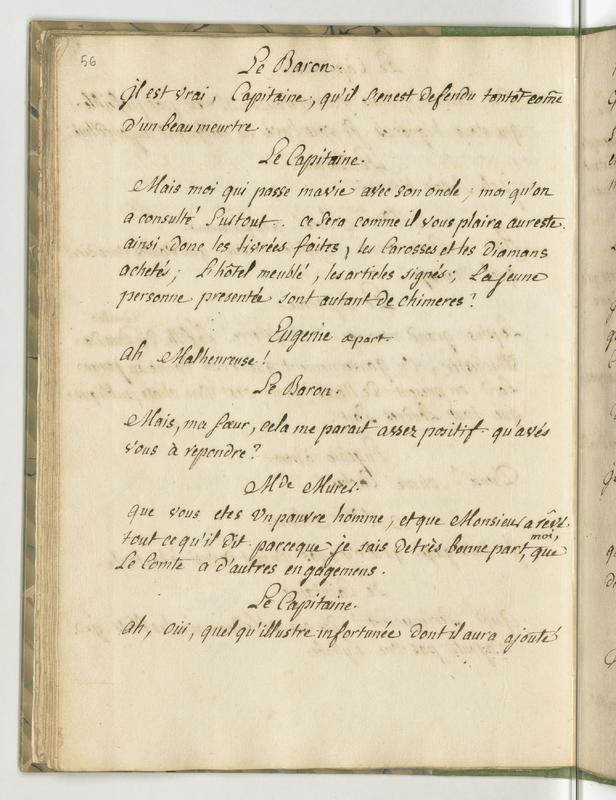 56
Le Baron.
Il est vrai, Capitaine, qu'il s'enest defendu tantot come
d'un beau meurtre
Le Capitaine.
Mais moi qui passe mavie avec son oncle; moi qu'on
a consulté sustout.. ce sera comme il vous plaira aureste.
ainsi donc les livrées faites, les Carosses et les Diamans
achetés; l'hôtel meublé, les articles signés; La jeune
personne presentée sont autant de chimeres?
Eugenie apart.
ah Malheureuse!
Le Baron.
Mais, ma sœur, cela me parait assez positif. qu'avés
vous à repondre?
Mde Murer.
que vous etes un pauvre homme, et que Monsieur a rêvé
tout ce qu'il dit parceque je sais de très bonne part, moi, que
Le Comte a d'autres engagemens.
Le Capitaine.
ah, oui, quelqu'illustre infortunée dont il aura ajouté